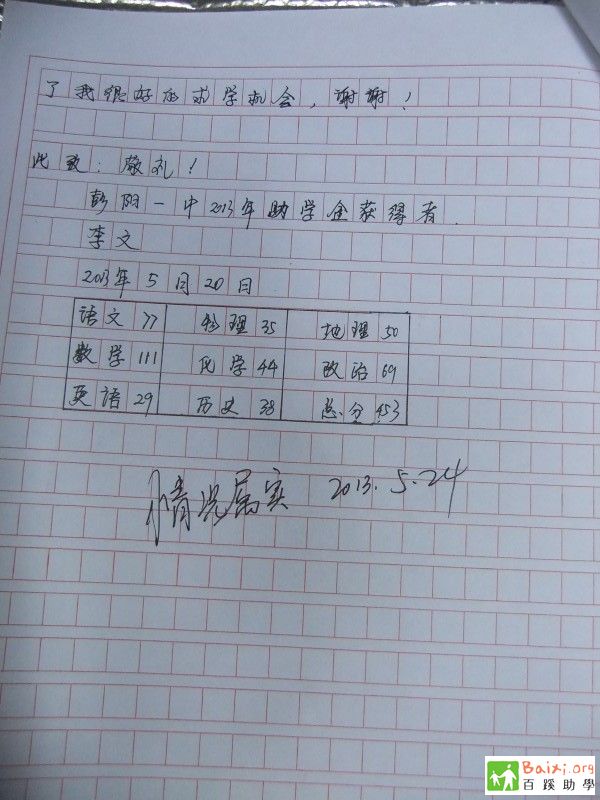 了我很好的求学机会，谢谢！
此致：敬礼！
彭阳一中2013年助学金获得者.
李文
2013年5月20日
语文 77 物理 35 地理 50
数学 111 化学 44 政治 69
英语 29 历史 38 总分 453
情况属实 2013.5.24
Baixi.org
百蹊助學